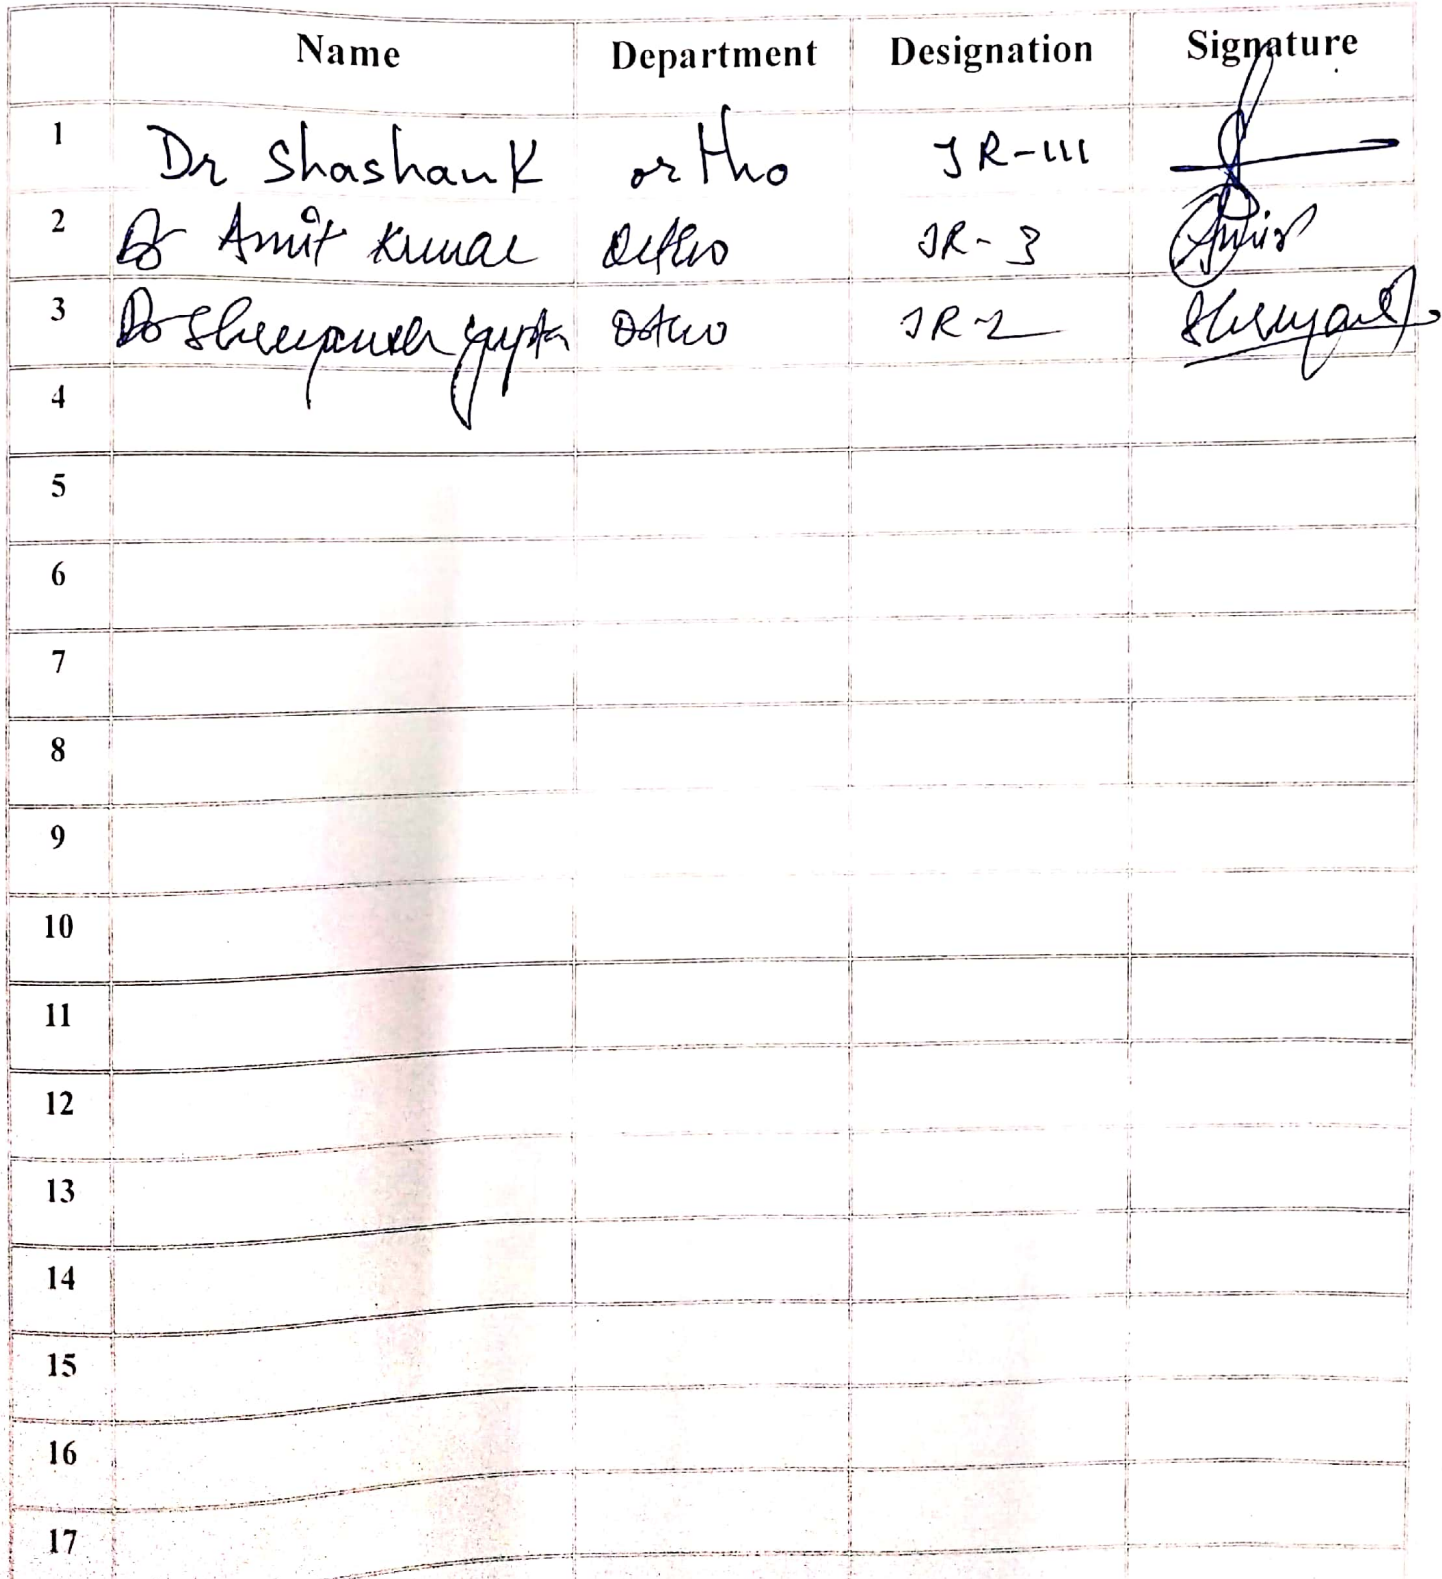 Name Department Designation Signature
1 Dr Shashank ortho JR-III
2 Dr Amit Kumar Ortho JR-3 Amit
3 Dr Shreyansh Gupta Ortho JR-2 Shreyansh
4
5
6
7
8
9
10
11
12
13
14
15
16
17